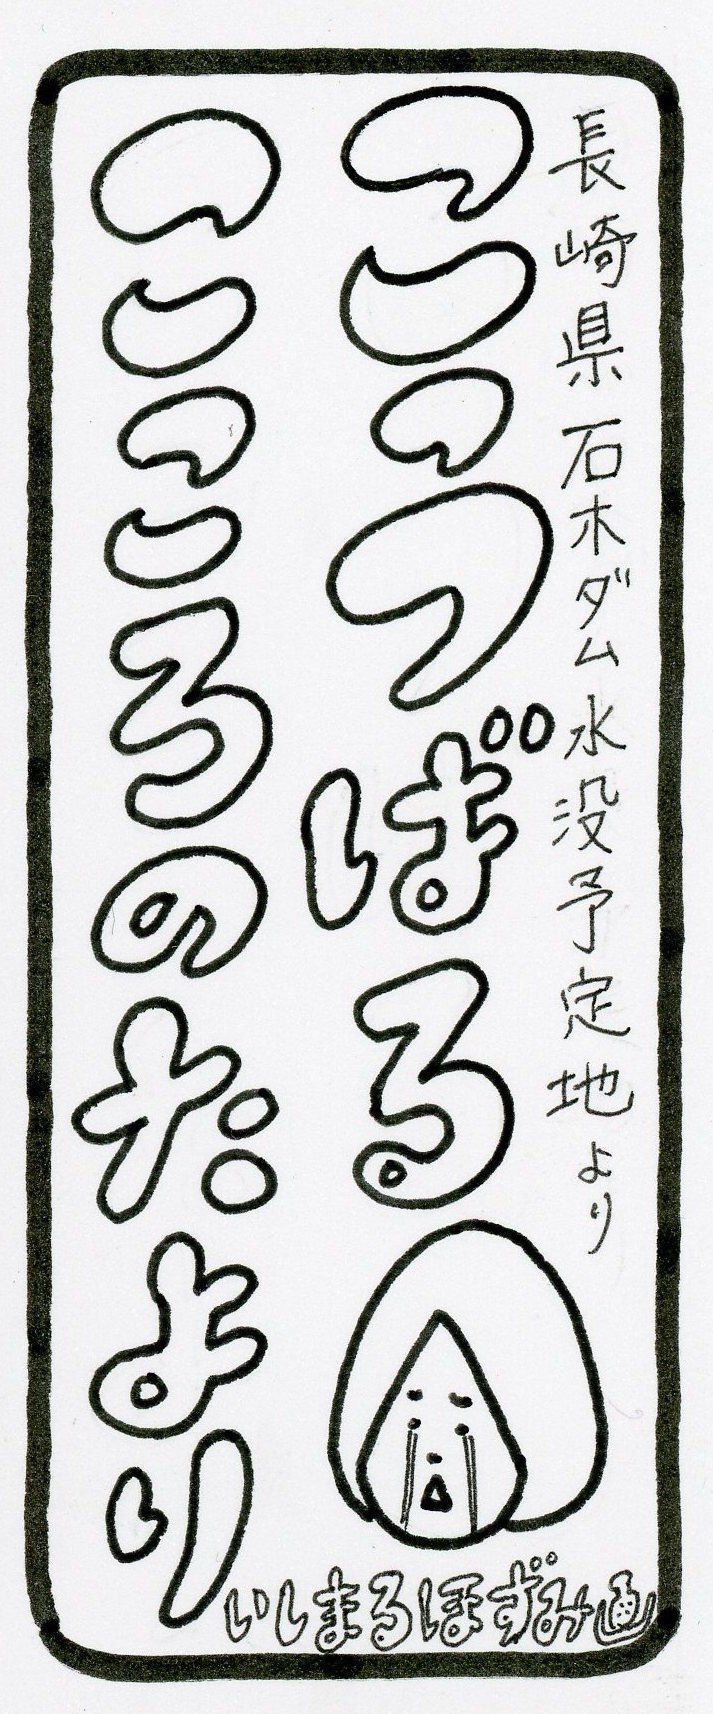 長崎県 石木ダム水没予定地より
こうばる
こころのたより
いしまるほずみ画